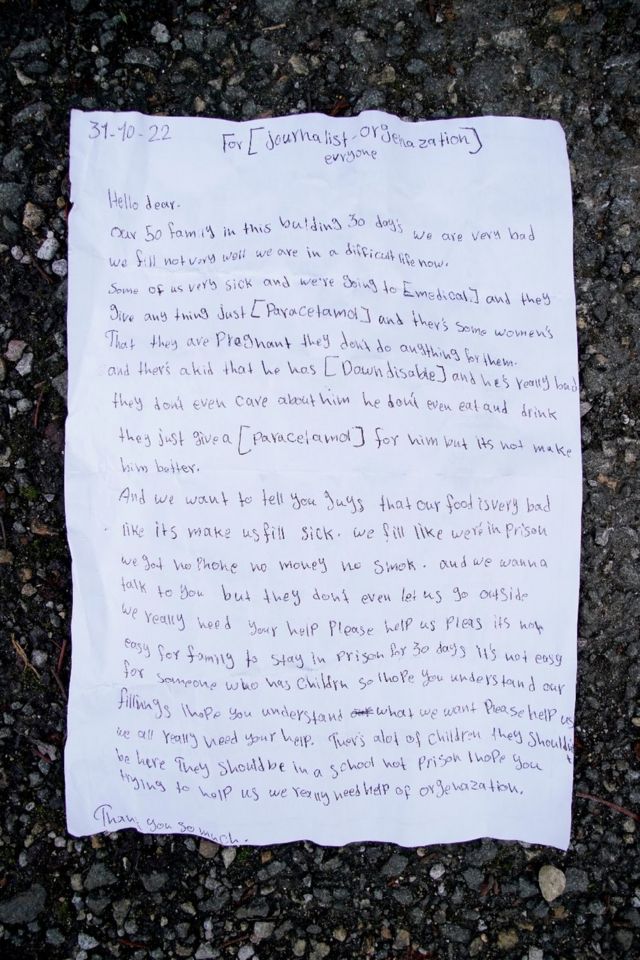 31-10-22
For [journalist - orgenazation]
evryone
Hello dear.
Our 50 family in this building 30 day's we are very bad
we fill not very well we are in a difficult life now.
Some of us very sick and we're going to [medical] and they
give any thing just [Paracetamol] and ther's some women's
That they are Pregnant they don't do anything for them.
and ther's a kid that he has [Down disable] and he's really bad
they don't even care about him he don't even eat and drink
they just give a [paracetamol] for him but its not make
him better.
And we want to tell you guys that our food is very bad
like its make us fill sick. we fill like we're in prison
we got no Phone no money no smok. and we wanna
talk to you but they don't even let us go outside
we really need your help Please help us pleas its not
easy for family to stay in prison for 30 days it's not easy
for someone who has childrn so I hope you understand our
fillings I hope you understand what we want Please help us
we all really need your help. Ther's alot of children they shouldn't
be here They should be in a school not prison I hope you
trying to help us we really need help of orgenazation.
Thank you so much.